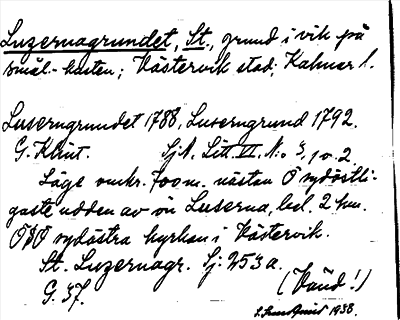 Luzernagrundet, St., grund i vik på
smål.-kusten; Västervik stad; Kalmar l.
Luserngrundet 1788, Luserngrund 1792.
G. Klint. SjA. Litt. VI. N:o 3, 1 o. 2.
Läge omkr. 700 m. nästan Ö sydöstli-
gaste udden av ön Luserna, bel. 2 km.
OSO sydöstra kyrkan i Västervik.
St. Luzernagr. Sj: 253a.
G. 37. (Vänd!)
1938.